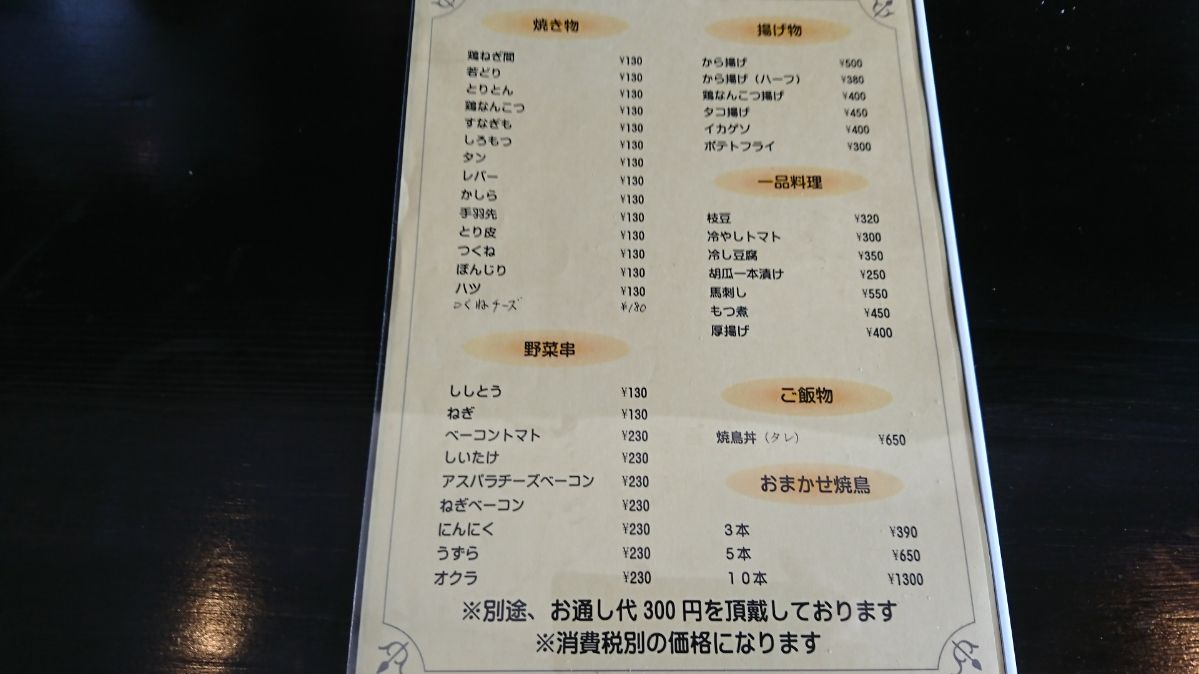 焼き物
鶏ねぎ間 ¥130
若どり ¥130
とりとん ¥130
鶏なんこつ ¥130
すなぎも ¥130
しろもつ ¥130
タン ¥130
レバー ¥130
かしら ¥130
手羽先 ¥130
とり皮 ¥130
つくね ¥130
ぼんじり ¥130
ハツ ¥130
つくねチーズ ¥180
野菜串
ししとう ¥130
ねぎ ¥130
ベーコントマト ¥230
しいたけ ¥230
アスパラチーズベーコン ¥230
ねぎベーコン ¥230
にんにく ¥230
うずら ¥230
オクラ ¥230
揚げ物
から揚げ ¥500
から揚げ（ハーフ） ¥380
鶏なんこつ揚げ ¥400
タコ揚げ ¥450
イカゲソ ¥400
ポテトフライ ¥300
一品料理
枝豆 ¥320
冷やしトマト ¥300
冷し豆腐 ¥350
胡瓜一本漬け ¥250
馬刺し ¥550
もつ煮 ¥450
厚揚げ ¥400
ご飯物
焼鳥丼（タレ） ¥650
おまかせ焼鳥
３本 ¥390
５本 ¥650
１０本 ¥1300
※別途、お通し代300円を頂戴しております
※消費税別の価格になります